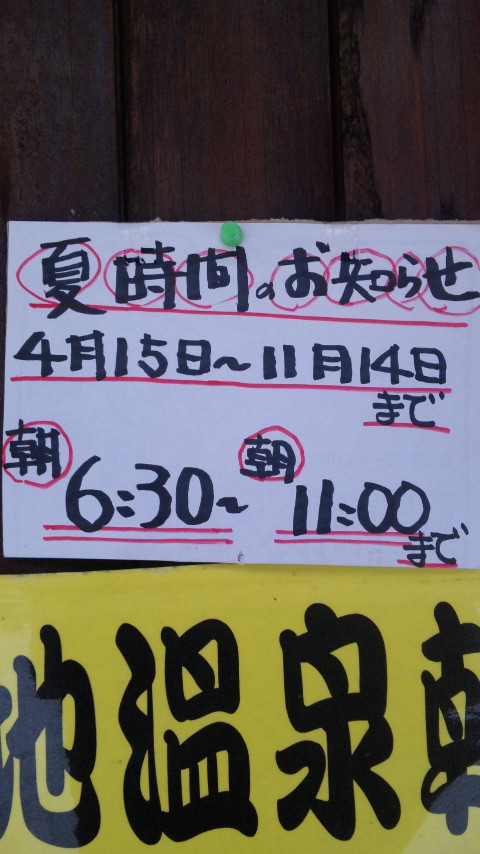 夏時間のお知らせ
4月15日~11月14日
まで
朝 朝
6:30~ 11:00
まで
地温泉朝